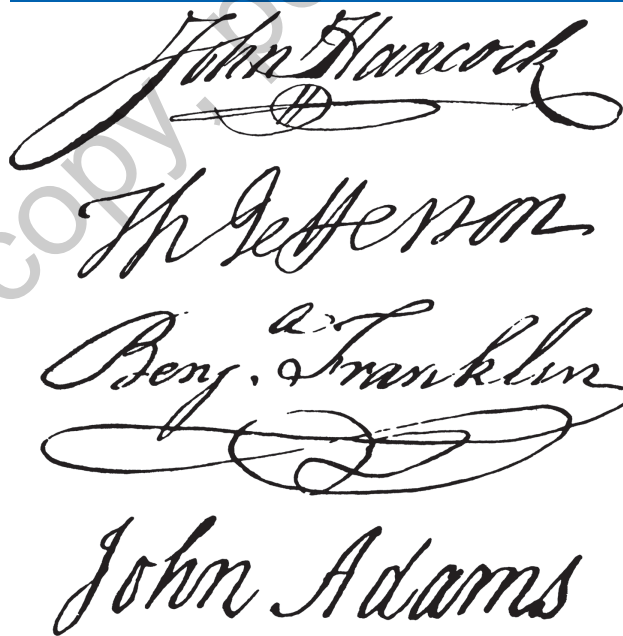 copy, p
John Hancock
Th Jefferson
Benj.ᵃ Franklin
John Adams